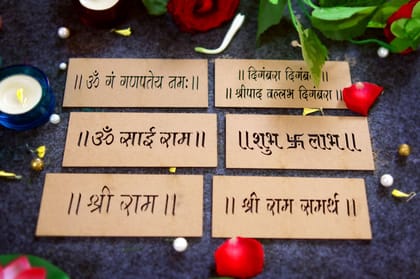 ॥ ॐ गं गणपतेय नमः ॥
॥ दिगंबरा दिगंबरा
श्रीपाद वल्लभ दिगंबरा ॥
॥ ॐ साई राम ॥
॥ शुभ 卐 लाभ ॥
॥ श्री राम ॥
॥ श्री राम समर्थ ॥